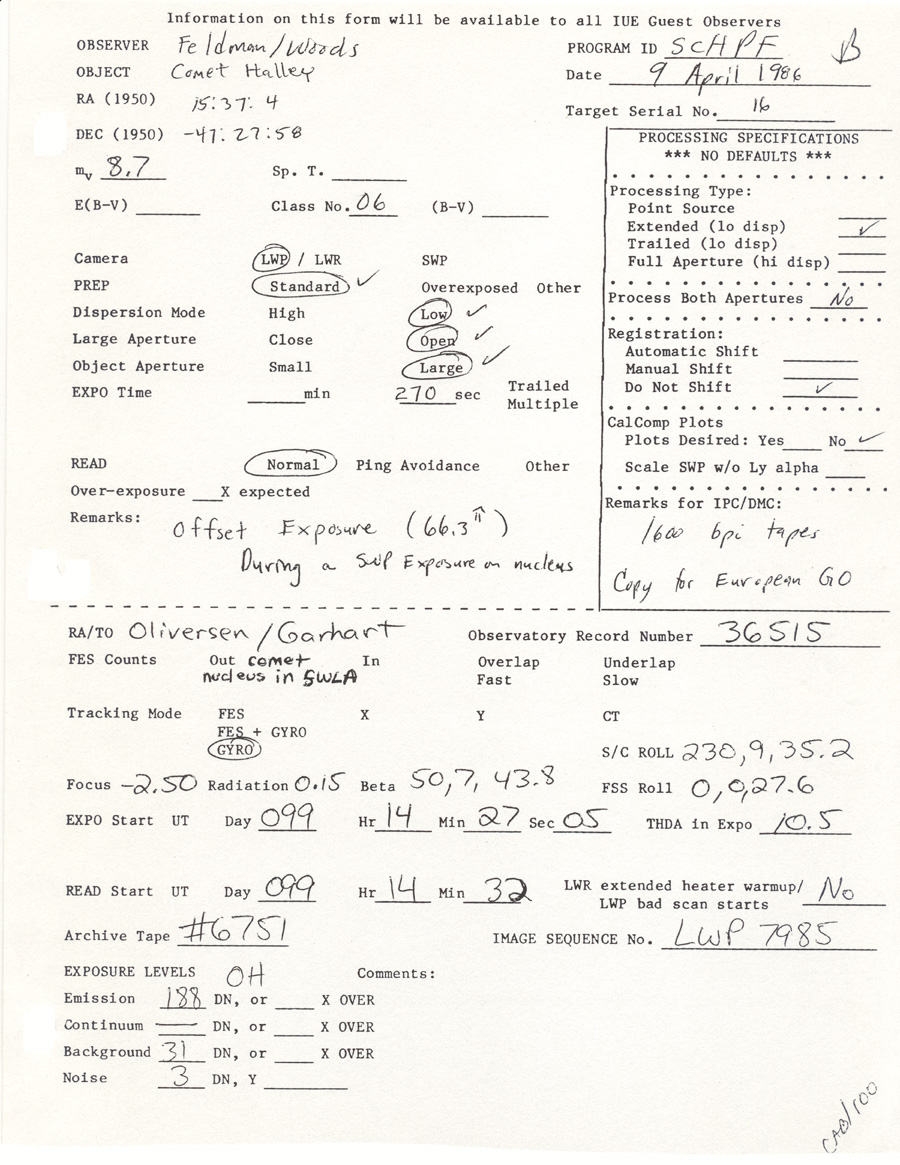 Information on this form will be available to all IUE Guest Observers
OBSERVER Feldman/Woods
PROGRAM ID SCHPF
OBJECT Comet Halley
Date 9 April 1986
RA (1950) 15:37:4
Target Serial No. 16
DEC (1950) -47:27:58
mv 8.7 Sp. T.
E(B-V) Class No. 06 (B-V)
Camera LWP / LWR SWP
PREP Standard ✓ Overexposed Other
Dispersion Mode High Low ✓
Large Aperture Close Open ✓
Object Aperture Small Large ✓
EXPO Time min 270 sec Trailed
Multiple
READ Normal Ping Avoidance Other
Over-exposure X expected
Remarks: Offset Exposure (66.3")
During a SWP Exposure on nucleus
PROCESSING SPECIFICATIONS
*** NO DEFAULTS ***
Processing Type:
Point Source
Extended (lo disp) ✓
Trailed (lo disp)
Full Aperture (hi disp)
Process Both Apertures No
Registration:
Automatic Shift
Manual Shift
Do Not Shift ✓
CalComp Plots
Plots Desired: Yes No ✓
Scale SWP w/o Ly alpha
Remarks for IPC/DMC:
1600 bpi tapes
Copy for European GO
RA/TO Oliversen/Garhart Observatory Record Number 36515
FES Counts Out comet In Overlap Underlap
nucleus in SWLA Fast Slow
Tracking Mode FES X Y CT
FES + GYRO
GYRO S/C ROLL 230,9,35.2
Focus -2.50 Radiation 0.15 Beta 50,7,43.8 FSS Roll 0,0,27.6
EXPO Start UT Day 099 Hr 14 Min 27 Sec 05 THDA in Expo 10.5
READ Start UT Day 099 Hr 14 Min 32 LWR extended heater warmup/
LWP bad scan starts No
Archive Tape #6751 IMAGE SEQUENCE No. LWP 7985
EXPOSURE LEVELS OH Comments:
Emission 188 DN, or X OVER
Continuum — DN, or X OVER
Background 31 DN, or X OVER
Noise 3 DN, Y